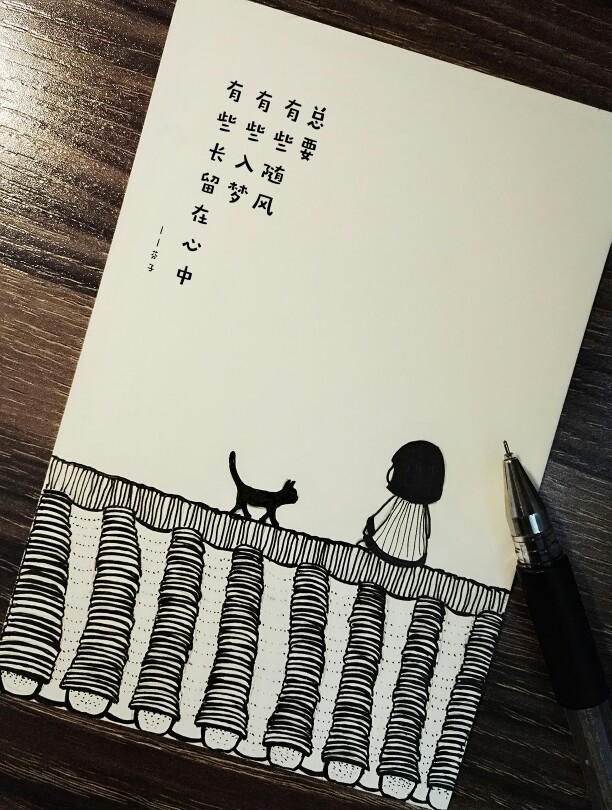 总要
有些随风
有些入梦
有些长留在心中
——芬子